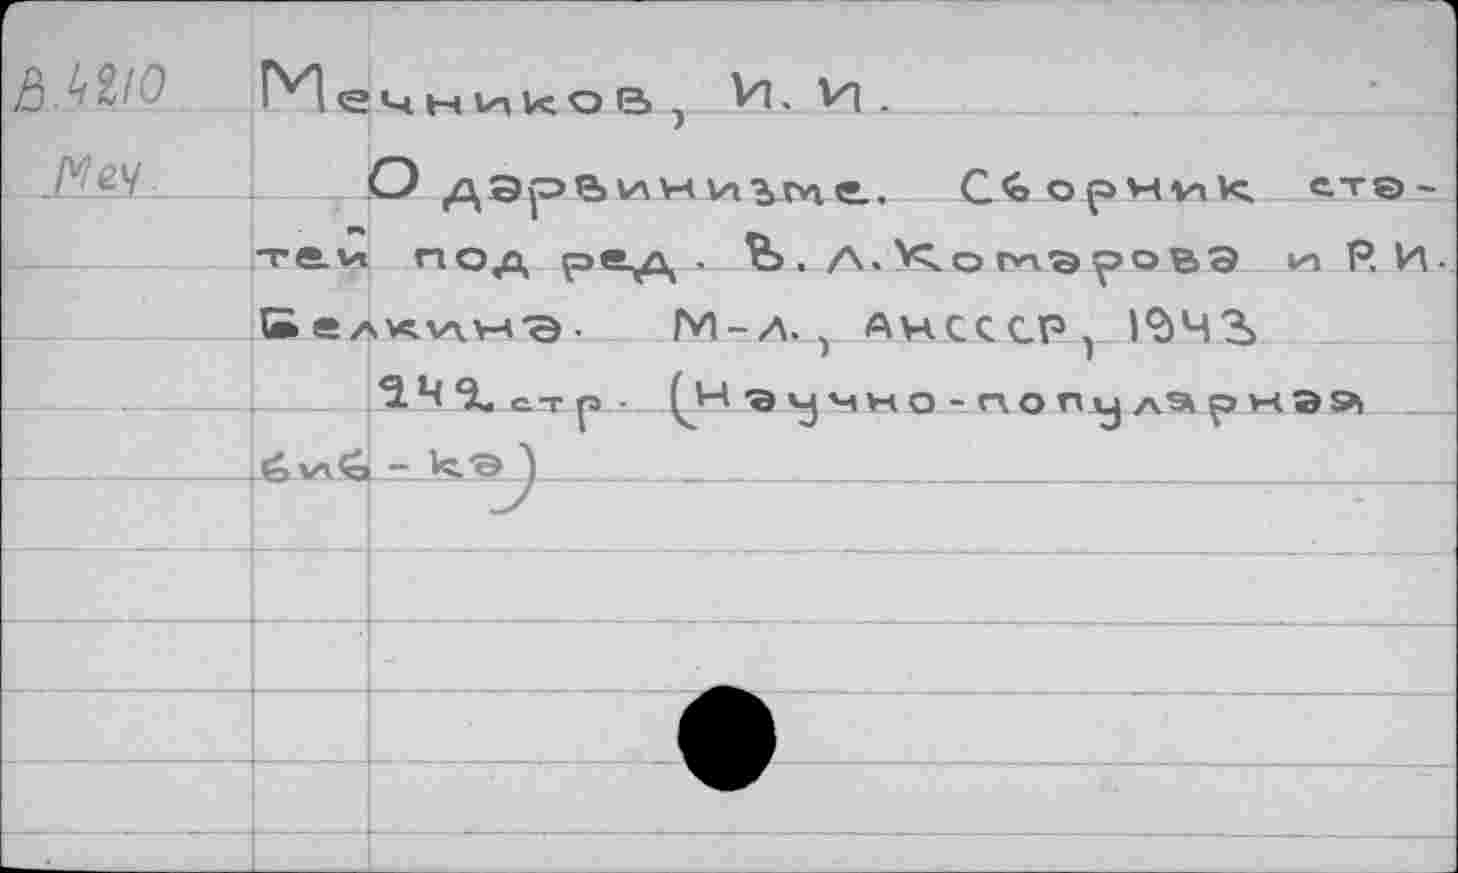 В.4210 Мечников, И. И.
Меч О дарвинизме. Сборник ста-
тей под ред. В. Л. Комарова и Р. И.
Белкина. М-Л., АНСССР, 1943
242 стр. (Научно-популярная
биб-ка)